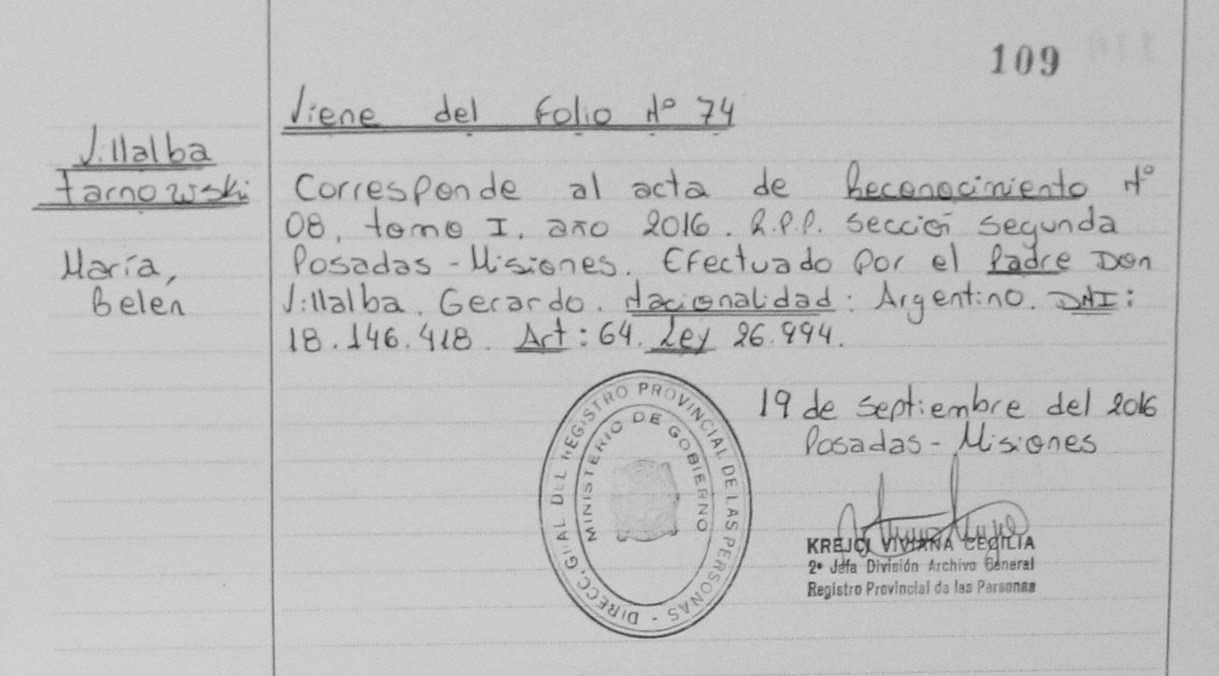 109
Viene del Folio Nº 74
Villalba
Tarnowski
María,
Belen
Corresponde al acta de Reconocimiento Nº
08, tomo I. año 2016. R.P.P. sección segunda
Posadas - Misiones. Efectuado Por el Padre Don
Villalba. Gerardo. Nacionalidad: Argentino. DNI:
18.146.418. Art: 64. Ley 26.994.
19 de Septiembre del 2016
Posadas - Misiones
DIRECC. GRAL DEL REGISTRO PROVINCIAL DE LAS PERSONAS -
MINISTERIO DE GOBIERNO
KREJCI VIVIANA CECILIA
2º Jefa División Archivo General
Registro Provincial de las Personas